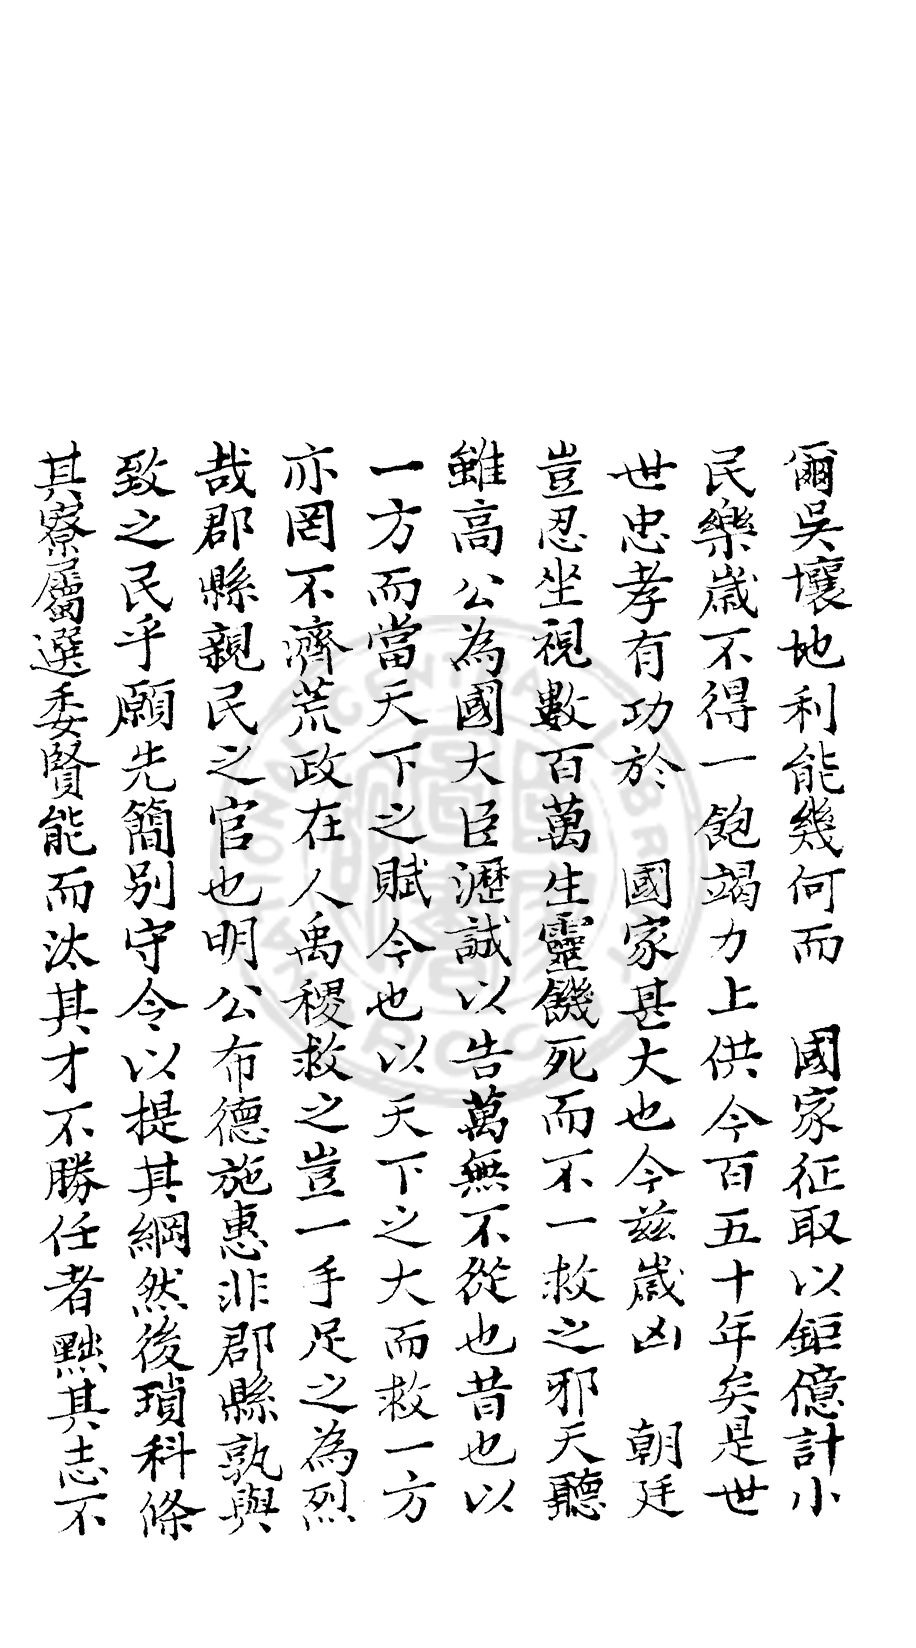 爾吳壤地利能幾何而　國家征取以鉅億計小
民樂歲不得一飽竭力上供今百五十年矣是世
世忠孝有功於　國家甚大也今茲歲凶　朝廷
豈忍坐視數百萬生靈饑死而不一救之邪天聽
雖高公為國大臣瀝誠以告萬無不從也昔也以
一方而當天下之賦今也以天下之大而救一方
亦罔不濟荒政在人禹稷救之豈一手足之為烈
哉郡縣親民之官也明公布德施惠非郡縣孰與
致之民乎願先簡別守令以提其綱然後瑣科條
其寮屬選委賢能而汰其才不勝任者黜其志不